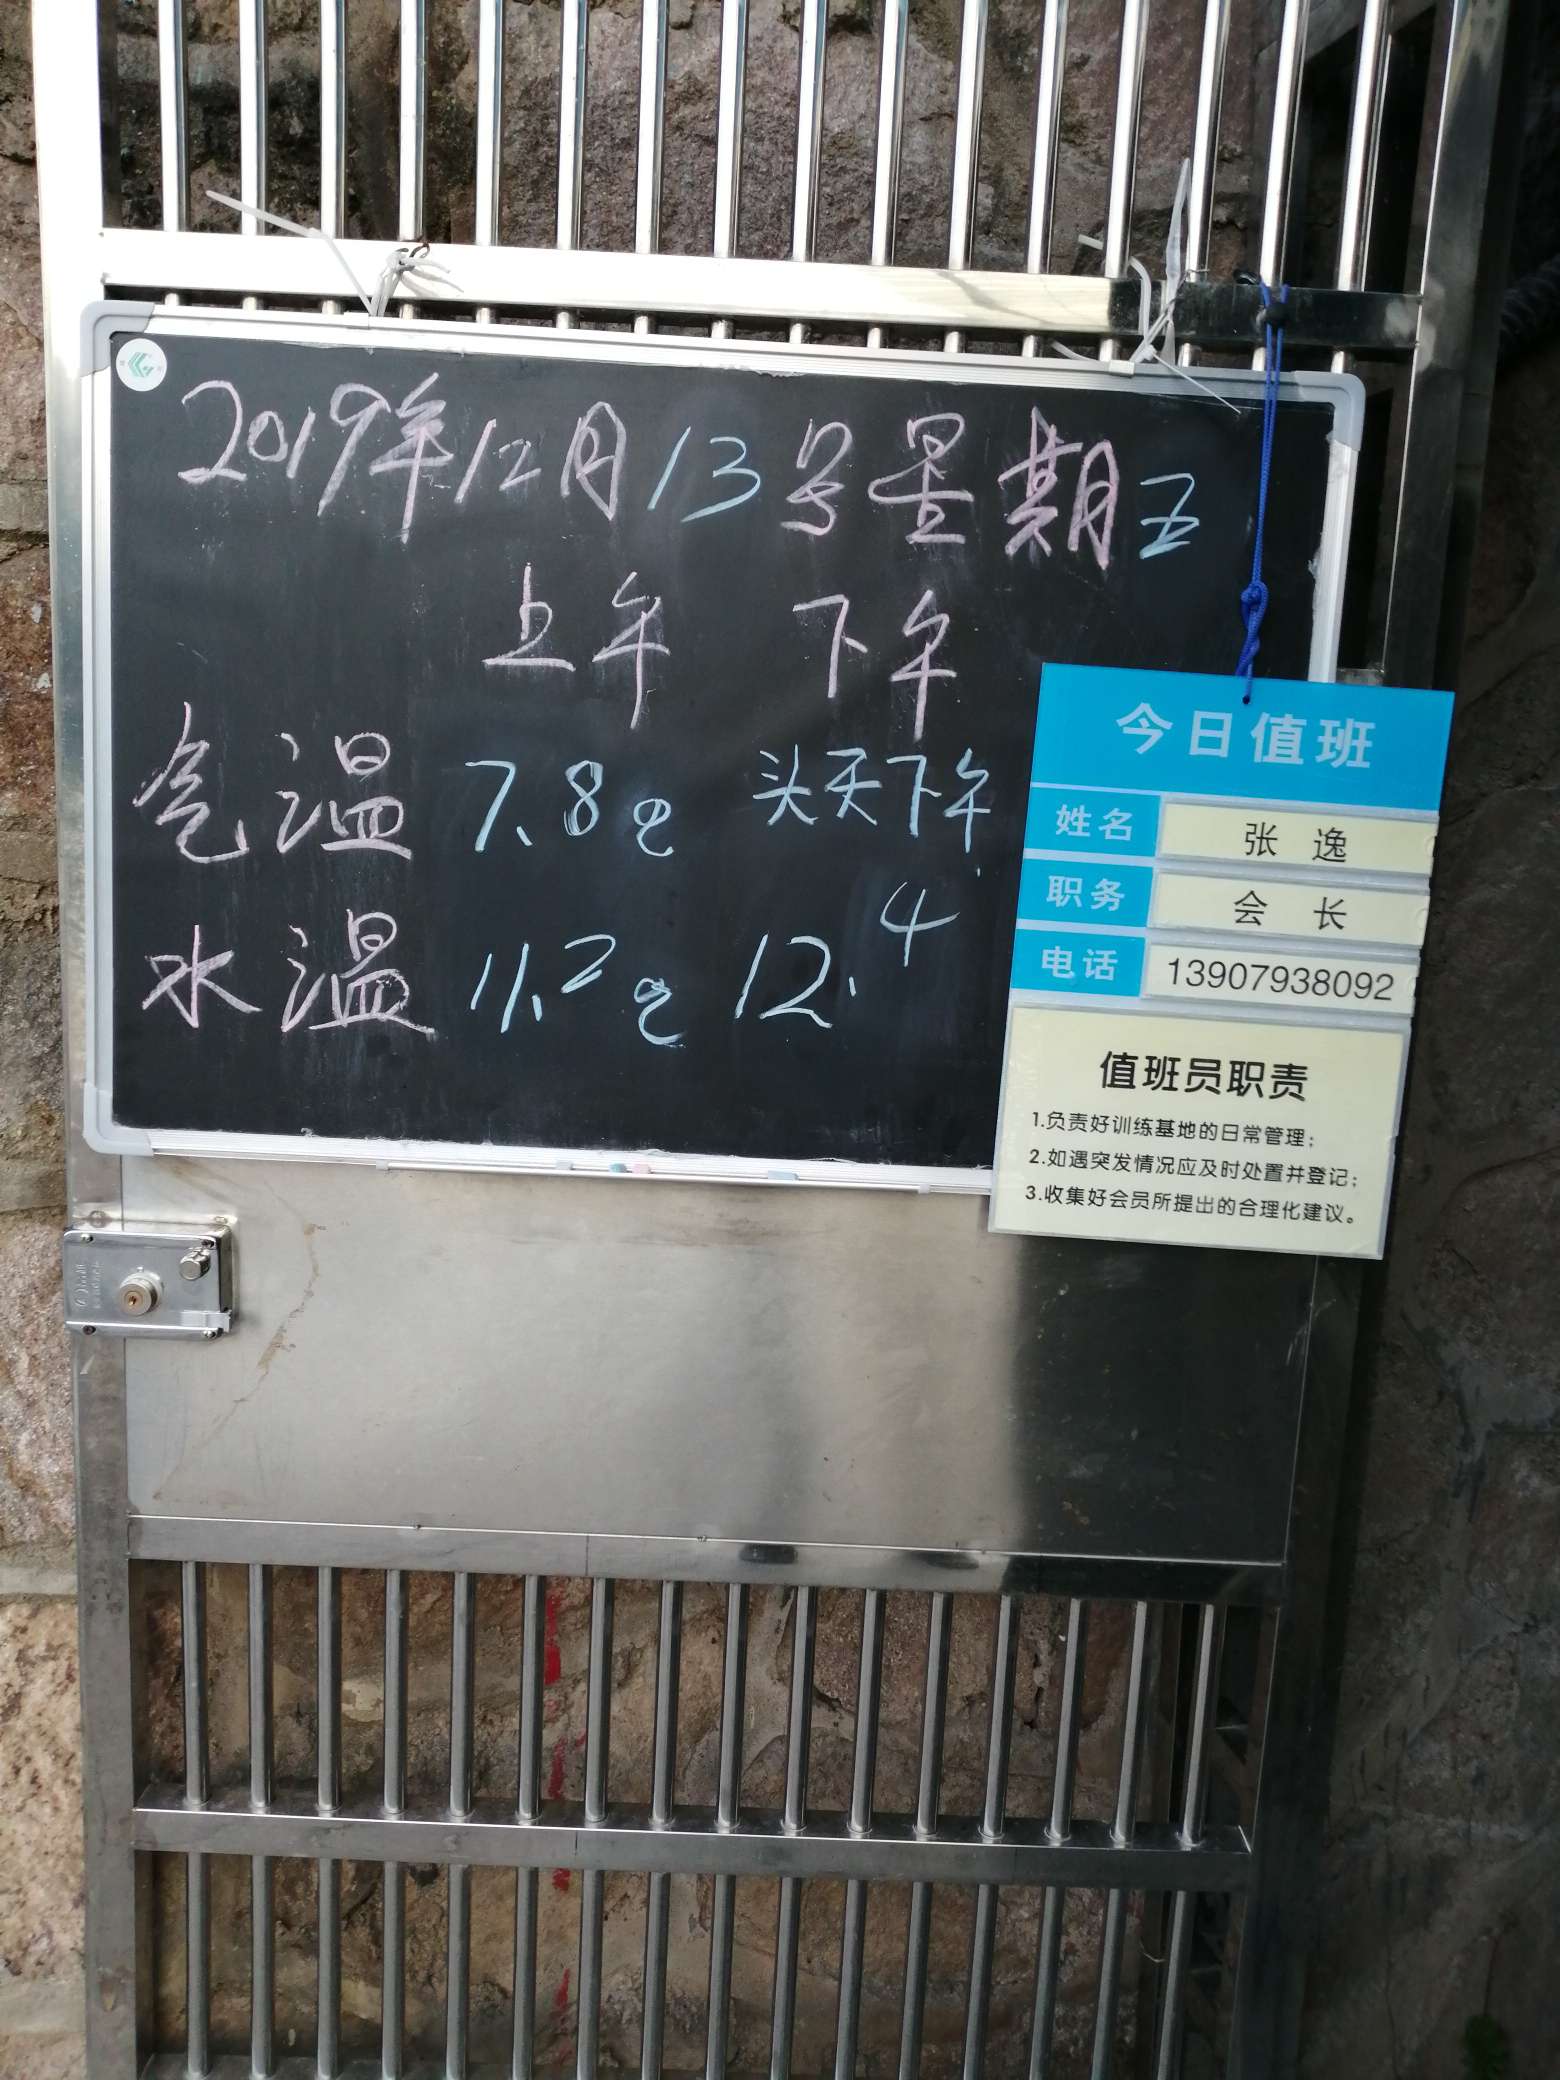 2019年12月13号星期五
上午 下午
气温 7.8℃ 头天下午
水温 11.2℃ 12.4
今日值班
姓名 张逸
职务 会长
电话 13907938092
值班员职责
1.负责好训练基地的日常管理；
2.如遇突发情况应及时处置并登记；
3.收集好会员所提出的合理化建议。